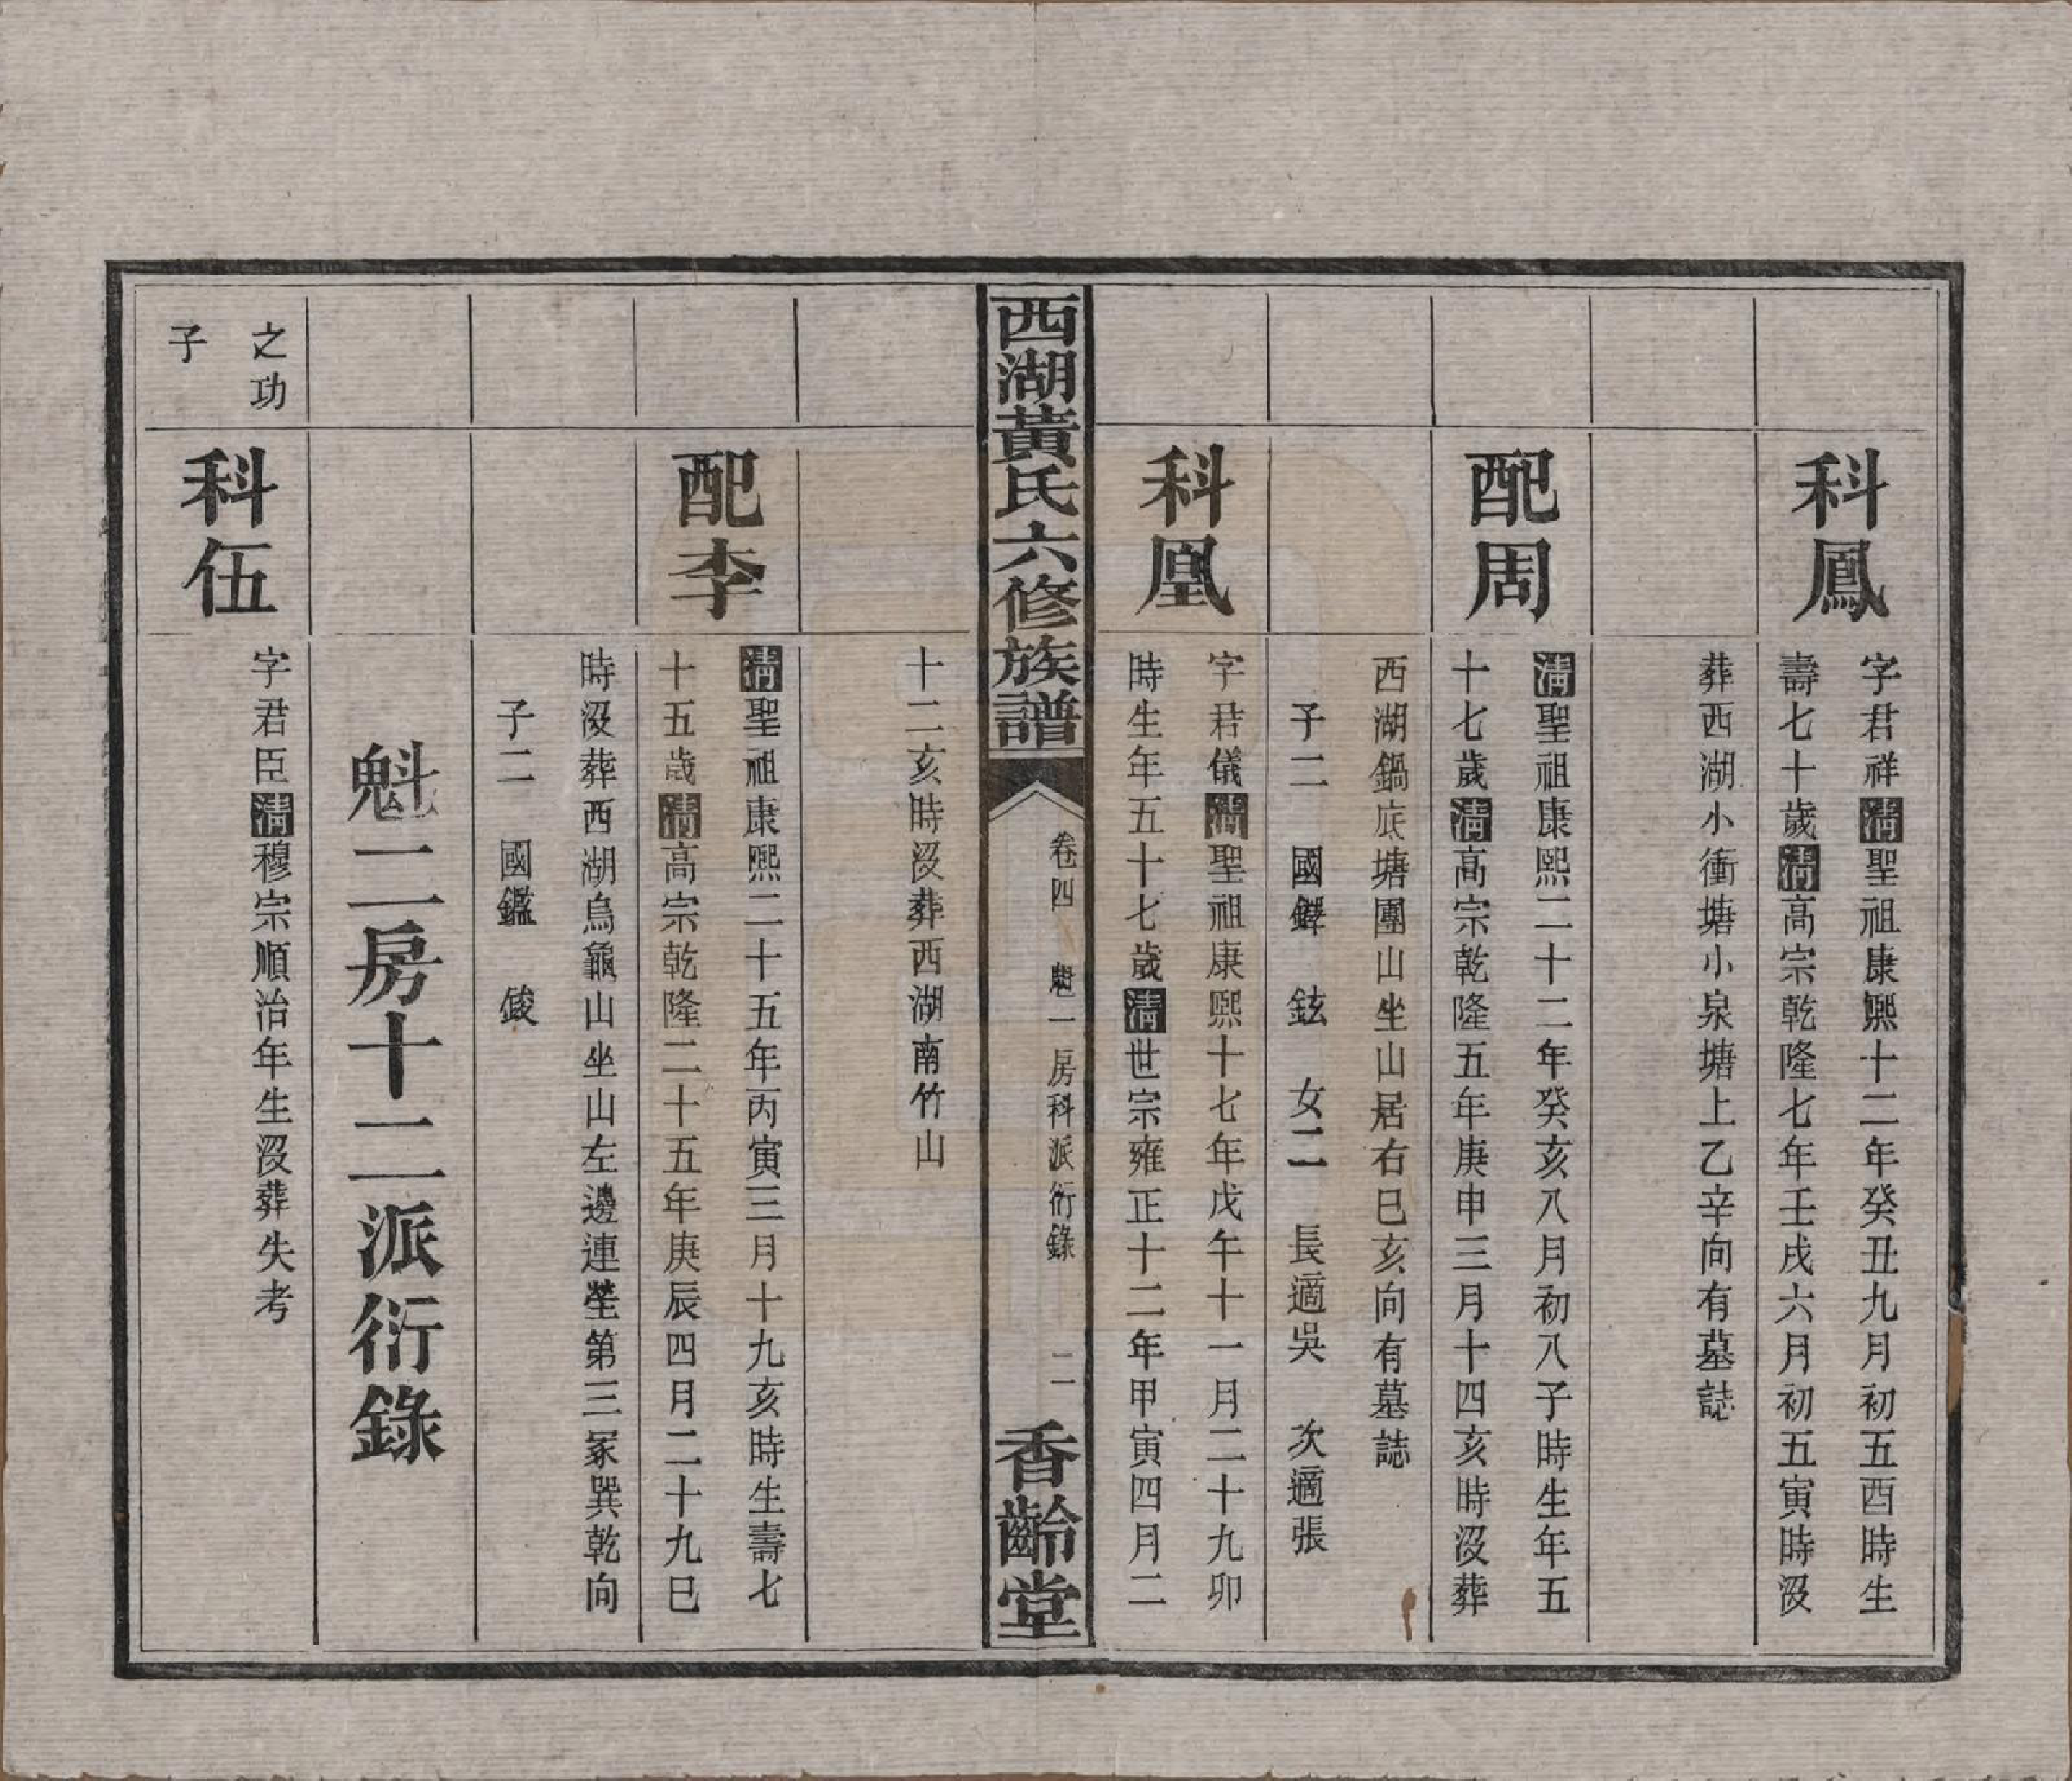 科鳳
字君祥清聖祖康熙十二年癸丑九月初五酉時生
壽七十歲清高宗乾隆七年壬戌六月初五寅時沒
葬西湖小衝塘小泉塘上乙辛向有墓誌
配周
清聖祖康熙二十二年癸亥八月初八子時生年五
十七歲清高宗乾隆五年庚申三月十四亥時沒葬
西湖鍋底塘團山坐山居右巳亥向有墓誌
子二　國鏵　鉉　女二　長適吳　次適張
科凰
字君儀清聖祖康熙十七年戊午十一月二十九卯
時生年五十七歲清世宗雍正十二年甲寅四月二
西湖黃氏六修族譜
卷四　魁一房科派衍錄　二
香齡堂
十二亥時沒葬西湖南竹山
配李
清聖祖康熙二十五年丙寅三月十九亥時生壽七
十五歲清高宗乾隆二十五年庚辰四月二十九巳
時沒葬西湖烏龜山坐山左邊連塋第三冢巽乾向
子二　國鑑　錂
魁二房十二派衍錄
之功
子
科伍
字君臣清穆宗順治年生沒葬失考